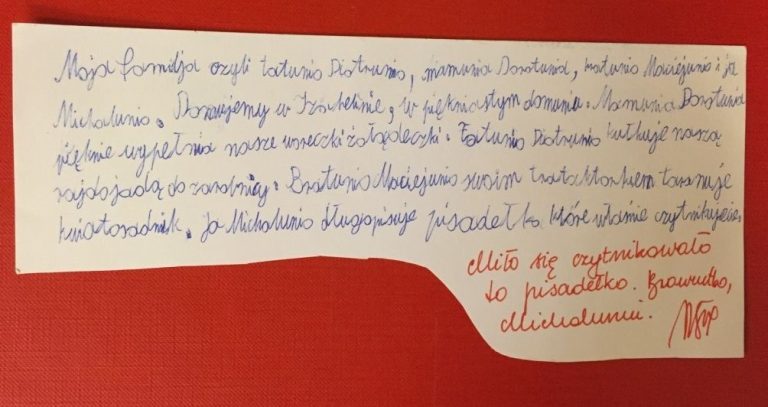 Moja familja czyli tatunio Piotrunio, mamunia Dorotunia, bratunio Maciejunio i ja
Michalunio. Domujemy w Izabelinie, w piękniastym domuniu. Mamunia Dorotunia
pięknie wypełnia nasze woreczki żołądeczki. Tatunio Piotrunio kulkuje naszą
rajdojadą do zarobnicy. Bratunio Maciejunio swoim trataktorkiem taranuje
kwiatosadnik. Ja Michalunio długopisuje pisadełko które właśnie czytnikujecie.
Miło się czytnikowało
to pisadełko. Brawutko,
Michaluniu.